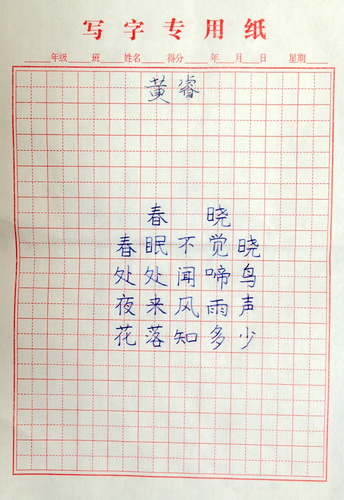 写字专用纸
年级 班 姓名 得分 年 月 日 星期
黄睿
春 晓
春眠不觉晓
处处闻啼鸟
夜来风雨声
花落知多少